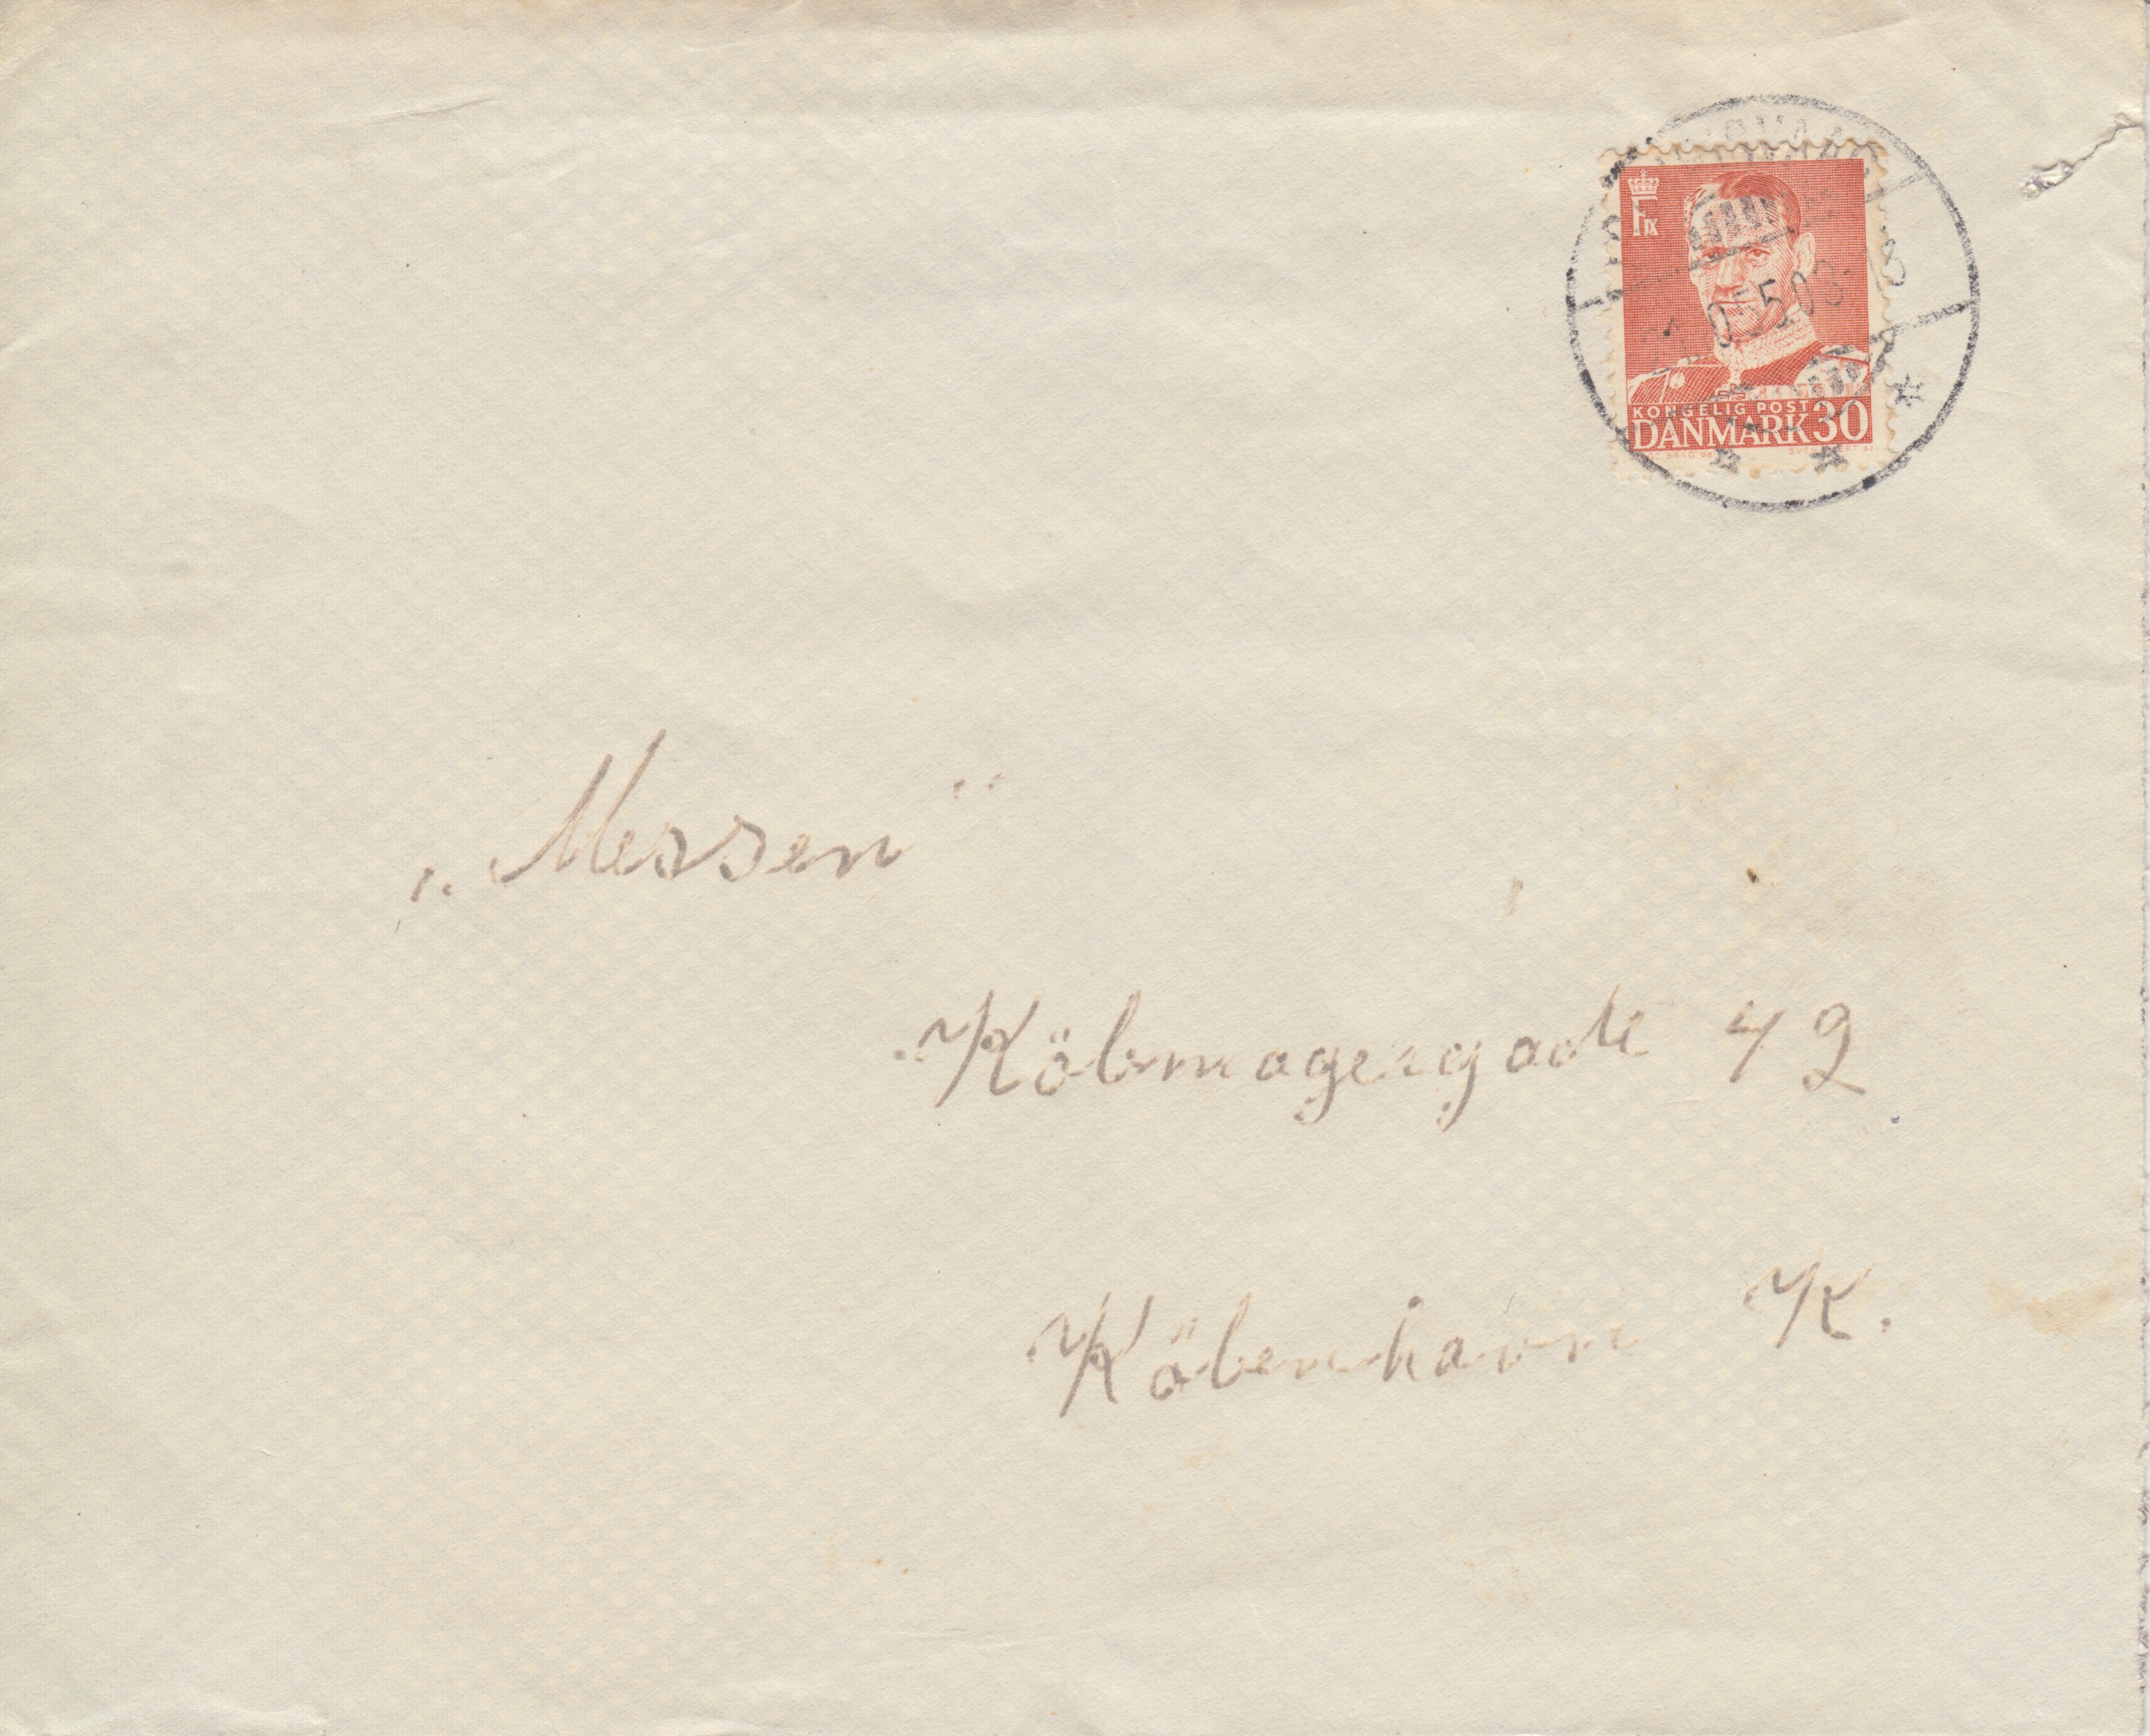 F IX
KONGELIG POST
DANMARK 30
„Messen"
Köbmagergade 42
Köbenhavn K.